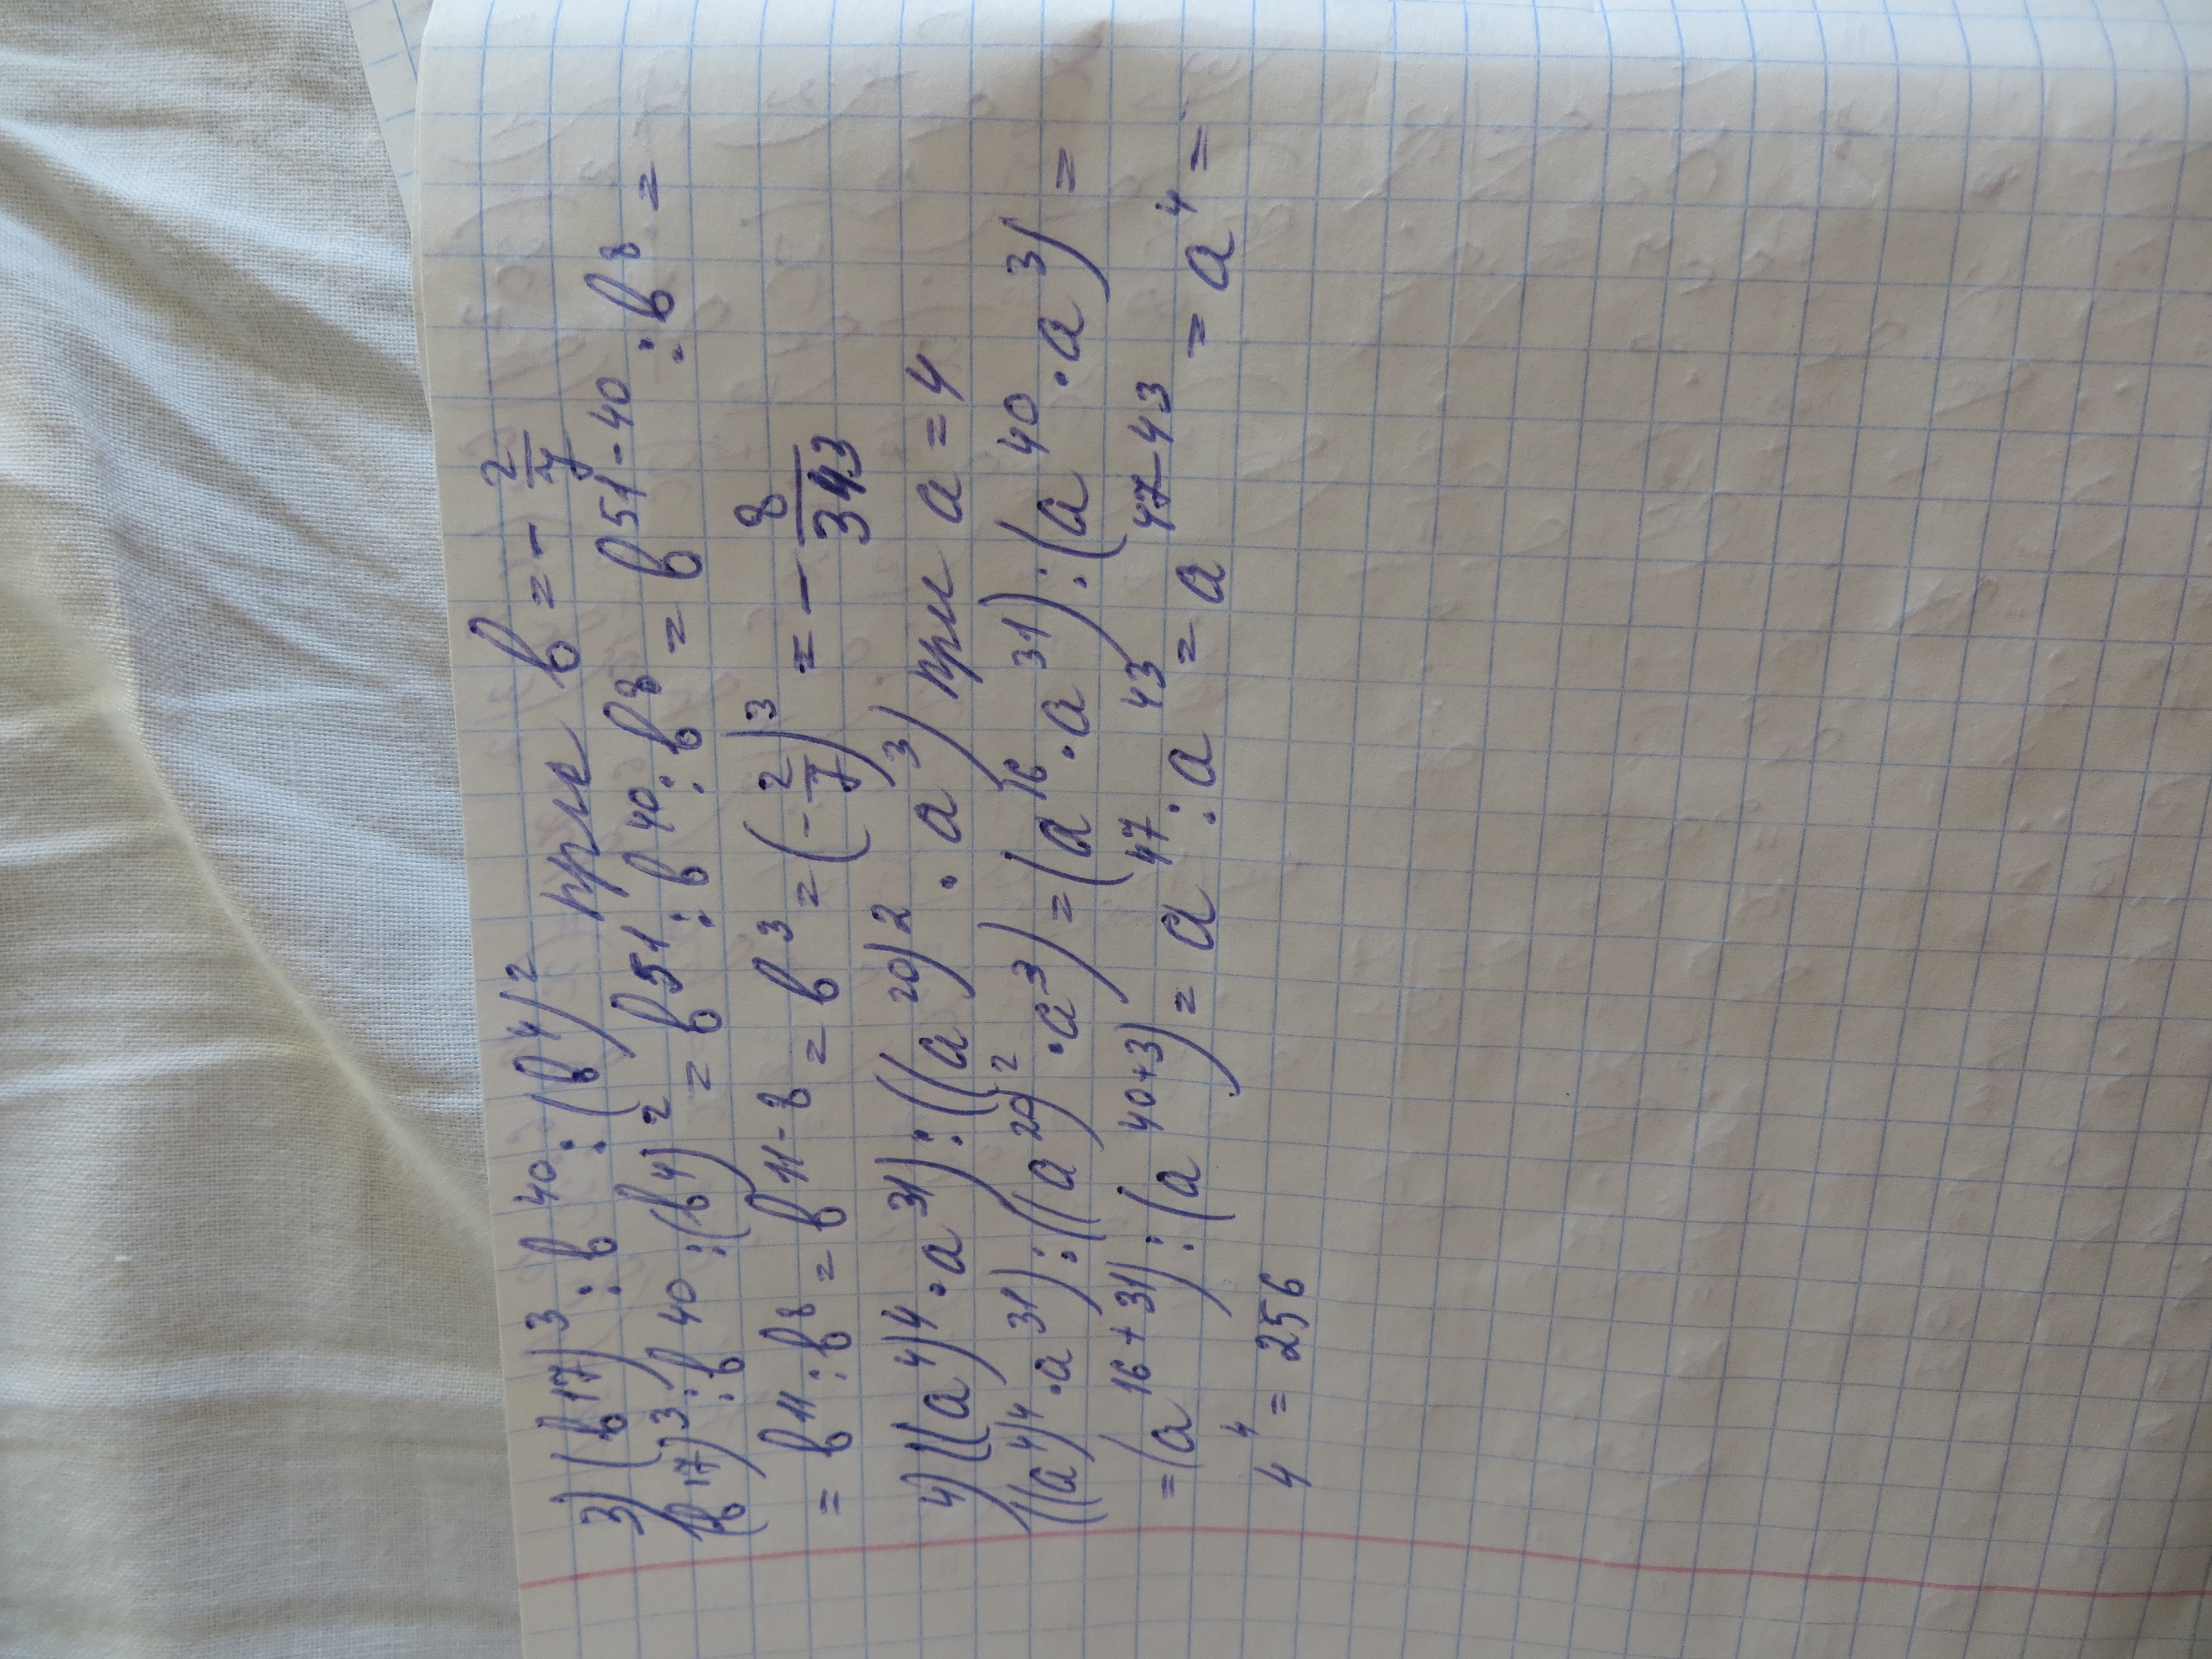 3) (b¹⁷)³ : b⁴⁰ : (b⁴)² при b = - 2/7
(b¹⁷)³ : b⁴⁰ : (b⁴)² = b⁵¹ : b⁴⁰ : b⁸ = b⁵¹⁻⁴⁰ : b⁸ =
= b¹¹ : b⁸ = b¹¹⁻⁸ = b³ = (- 2/7)³ = - 8/343
4) ((a⁴)⁴ · a³¹) : ((a²⁰)² · a³) при a = 4
((a⁴)⁴ · a³¹) : ((a²⁰)² · a³) = (a¹⁶ · a³¹) : (a⁴⁰ · a³) =
= (a¹⁶⁺³¹) : (a⁴⁰⁺³) = a⁴⁷ : a⁴³ = a⁴⁷⁻⁴³ = a⁴ =
4⁴ = 256